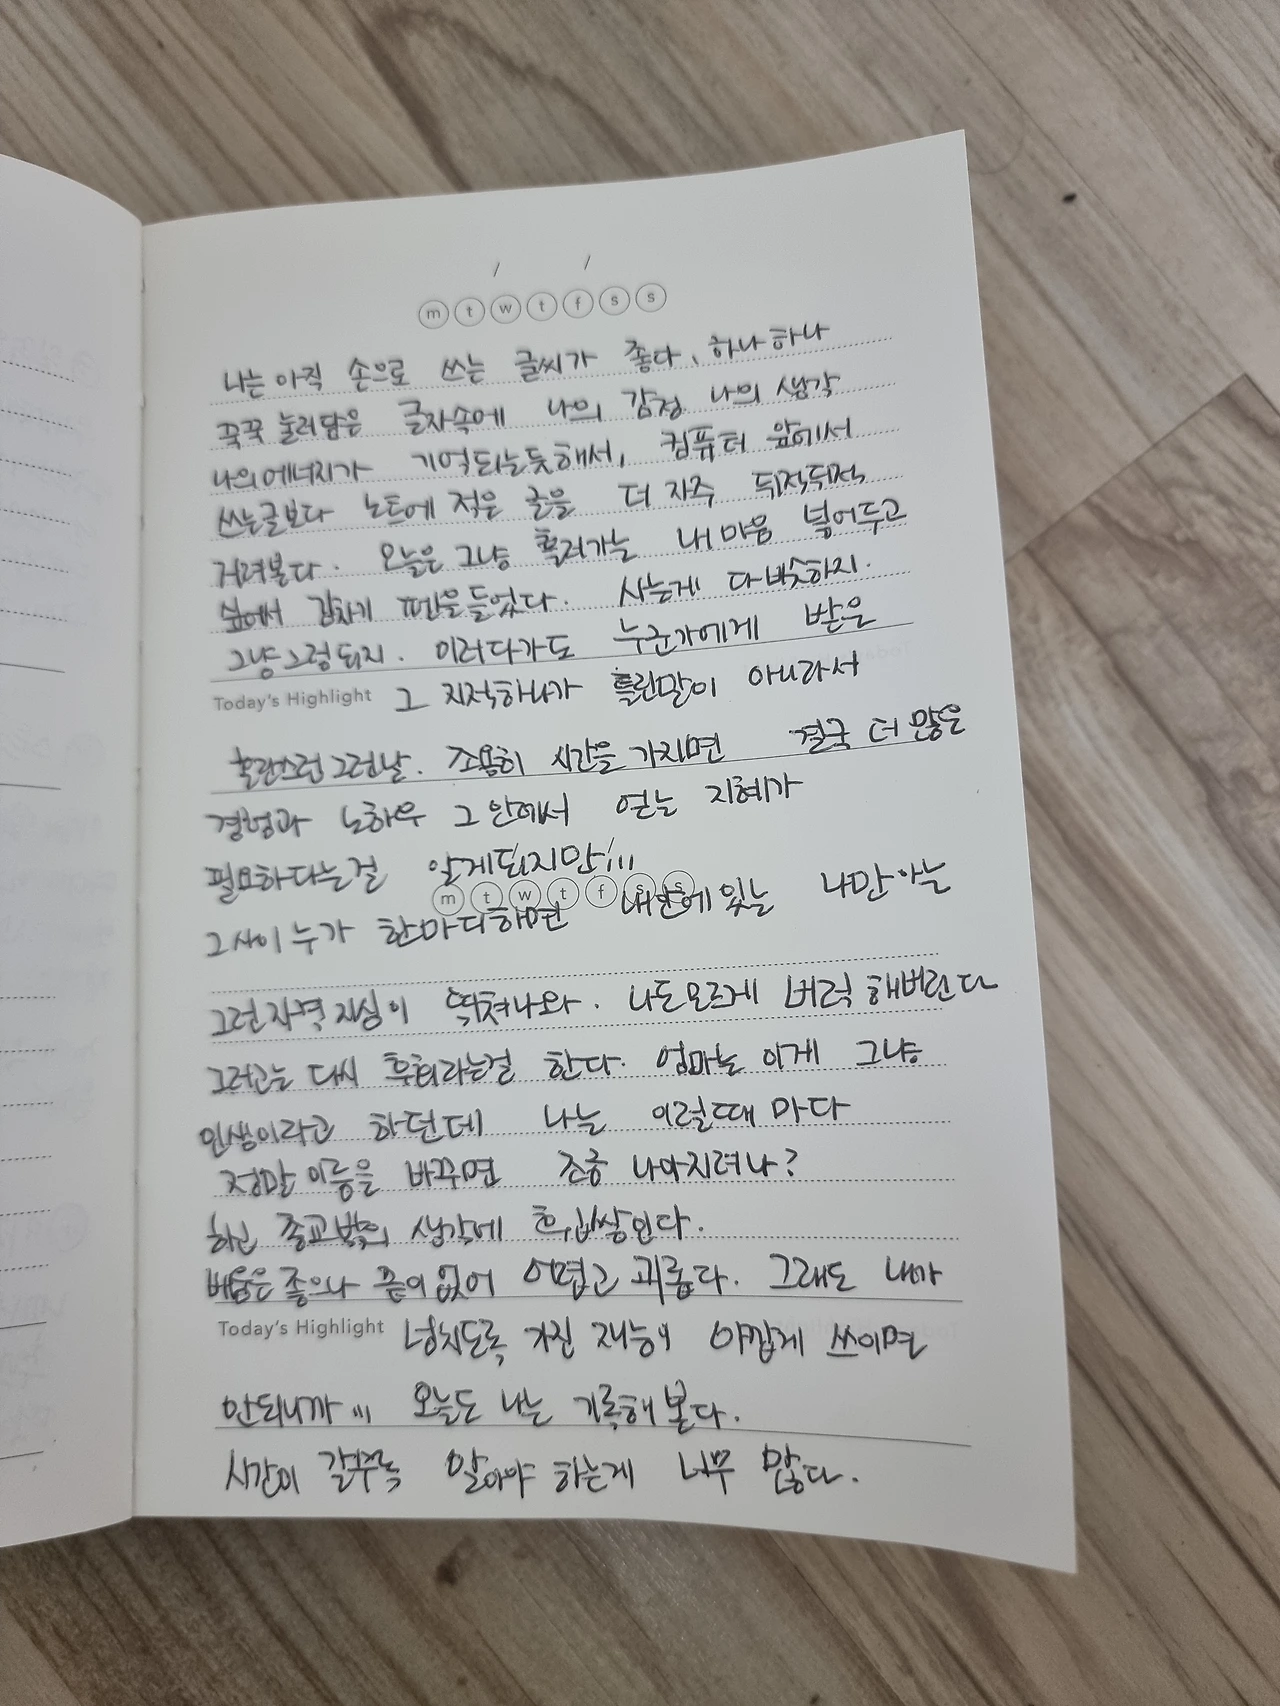 m t w t f s s
나는 아직 손으로 쓰는 글씨가 좋다. 하나하나
꾹꾹 눌러담은 글자속에 나의 감정 나의 생각
나의 에너지가 기억되는듯해서, 컴퓨터 앞에서
쓰는글보다 노트에 적은 글을 더 자주 뒤적뒤적
거려본다. 오늘은 그냥 흘러가는 내 마음 넣어두고
싶어서 갑자기 펜을 들었다. 사는게 다 비슷하지.
그냥 그렇 되지. 이러다가도 누군가에게 받은
Today's Highlight 그 지적하나가 틀린말이 아니라서
혼란스런 그런날. 조용히 시간을 가지면 결국 더 많은
경험과 노하우 그 안에서 얻는 지혜가
필요하다는걸 알게되지만...
m t w t f s s
그사이 누가 한마디하면 내안에 있는 나만 아는
그런 자격지심이 툭 나와. 나도모르게 버럭 해버린다
그러고는 다시 후회라는걸 한다. 엄마는 이게 그냥
인생이라고 하던데 나는 이럴때 마다
정말 이름을 바꾸면 조금 나아지려나?
하는 종교밖의 생각에 휩싸인다.
배움은 좋으나 끝이 없어 어렵고 괴롭다. 그래도 내가
Today's Highlight 넘치도록 가진 재능이 아깝게 쓰이면
안되니까... 오늘도 나는 기록해 본다.
시간이 갈수록 알아야 하는게 너무 많다.